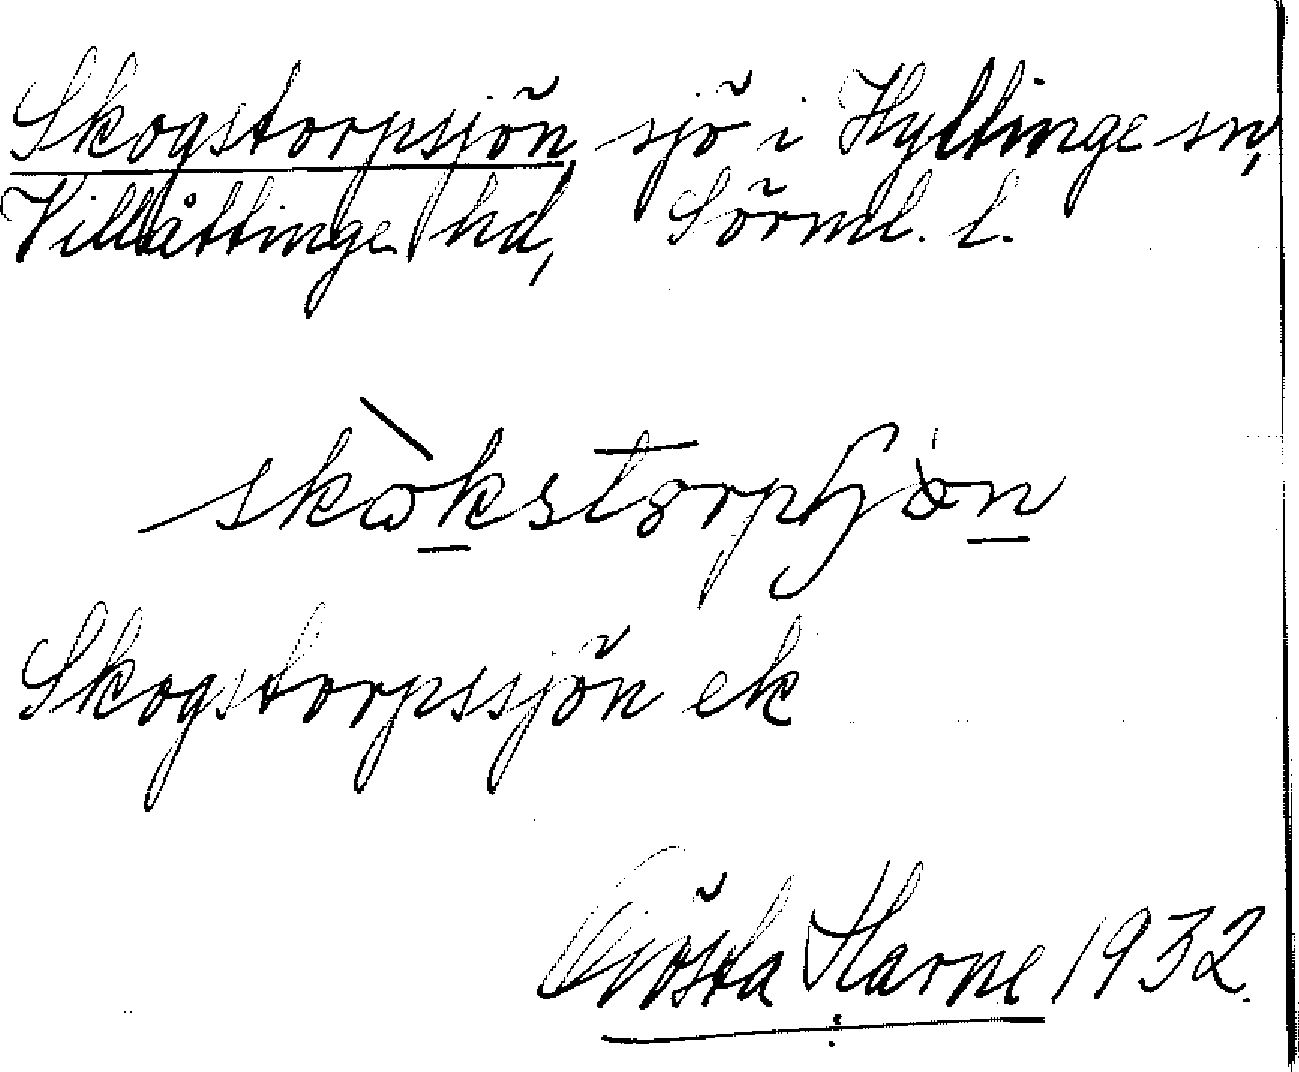 Skogstorpsjön, sjö i Hyltinge sn,
Villåttinge hd, Sörml. l.
skòkstorpʃjön
Skogstorpssjön ek
Gösta Harne 1932.